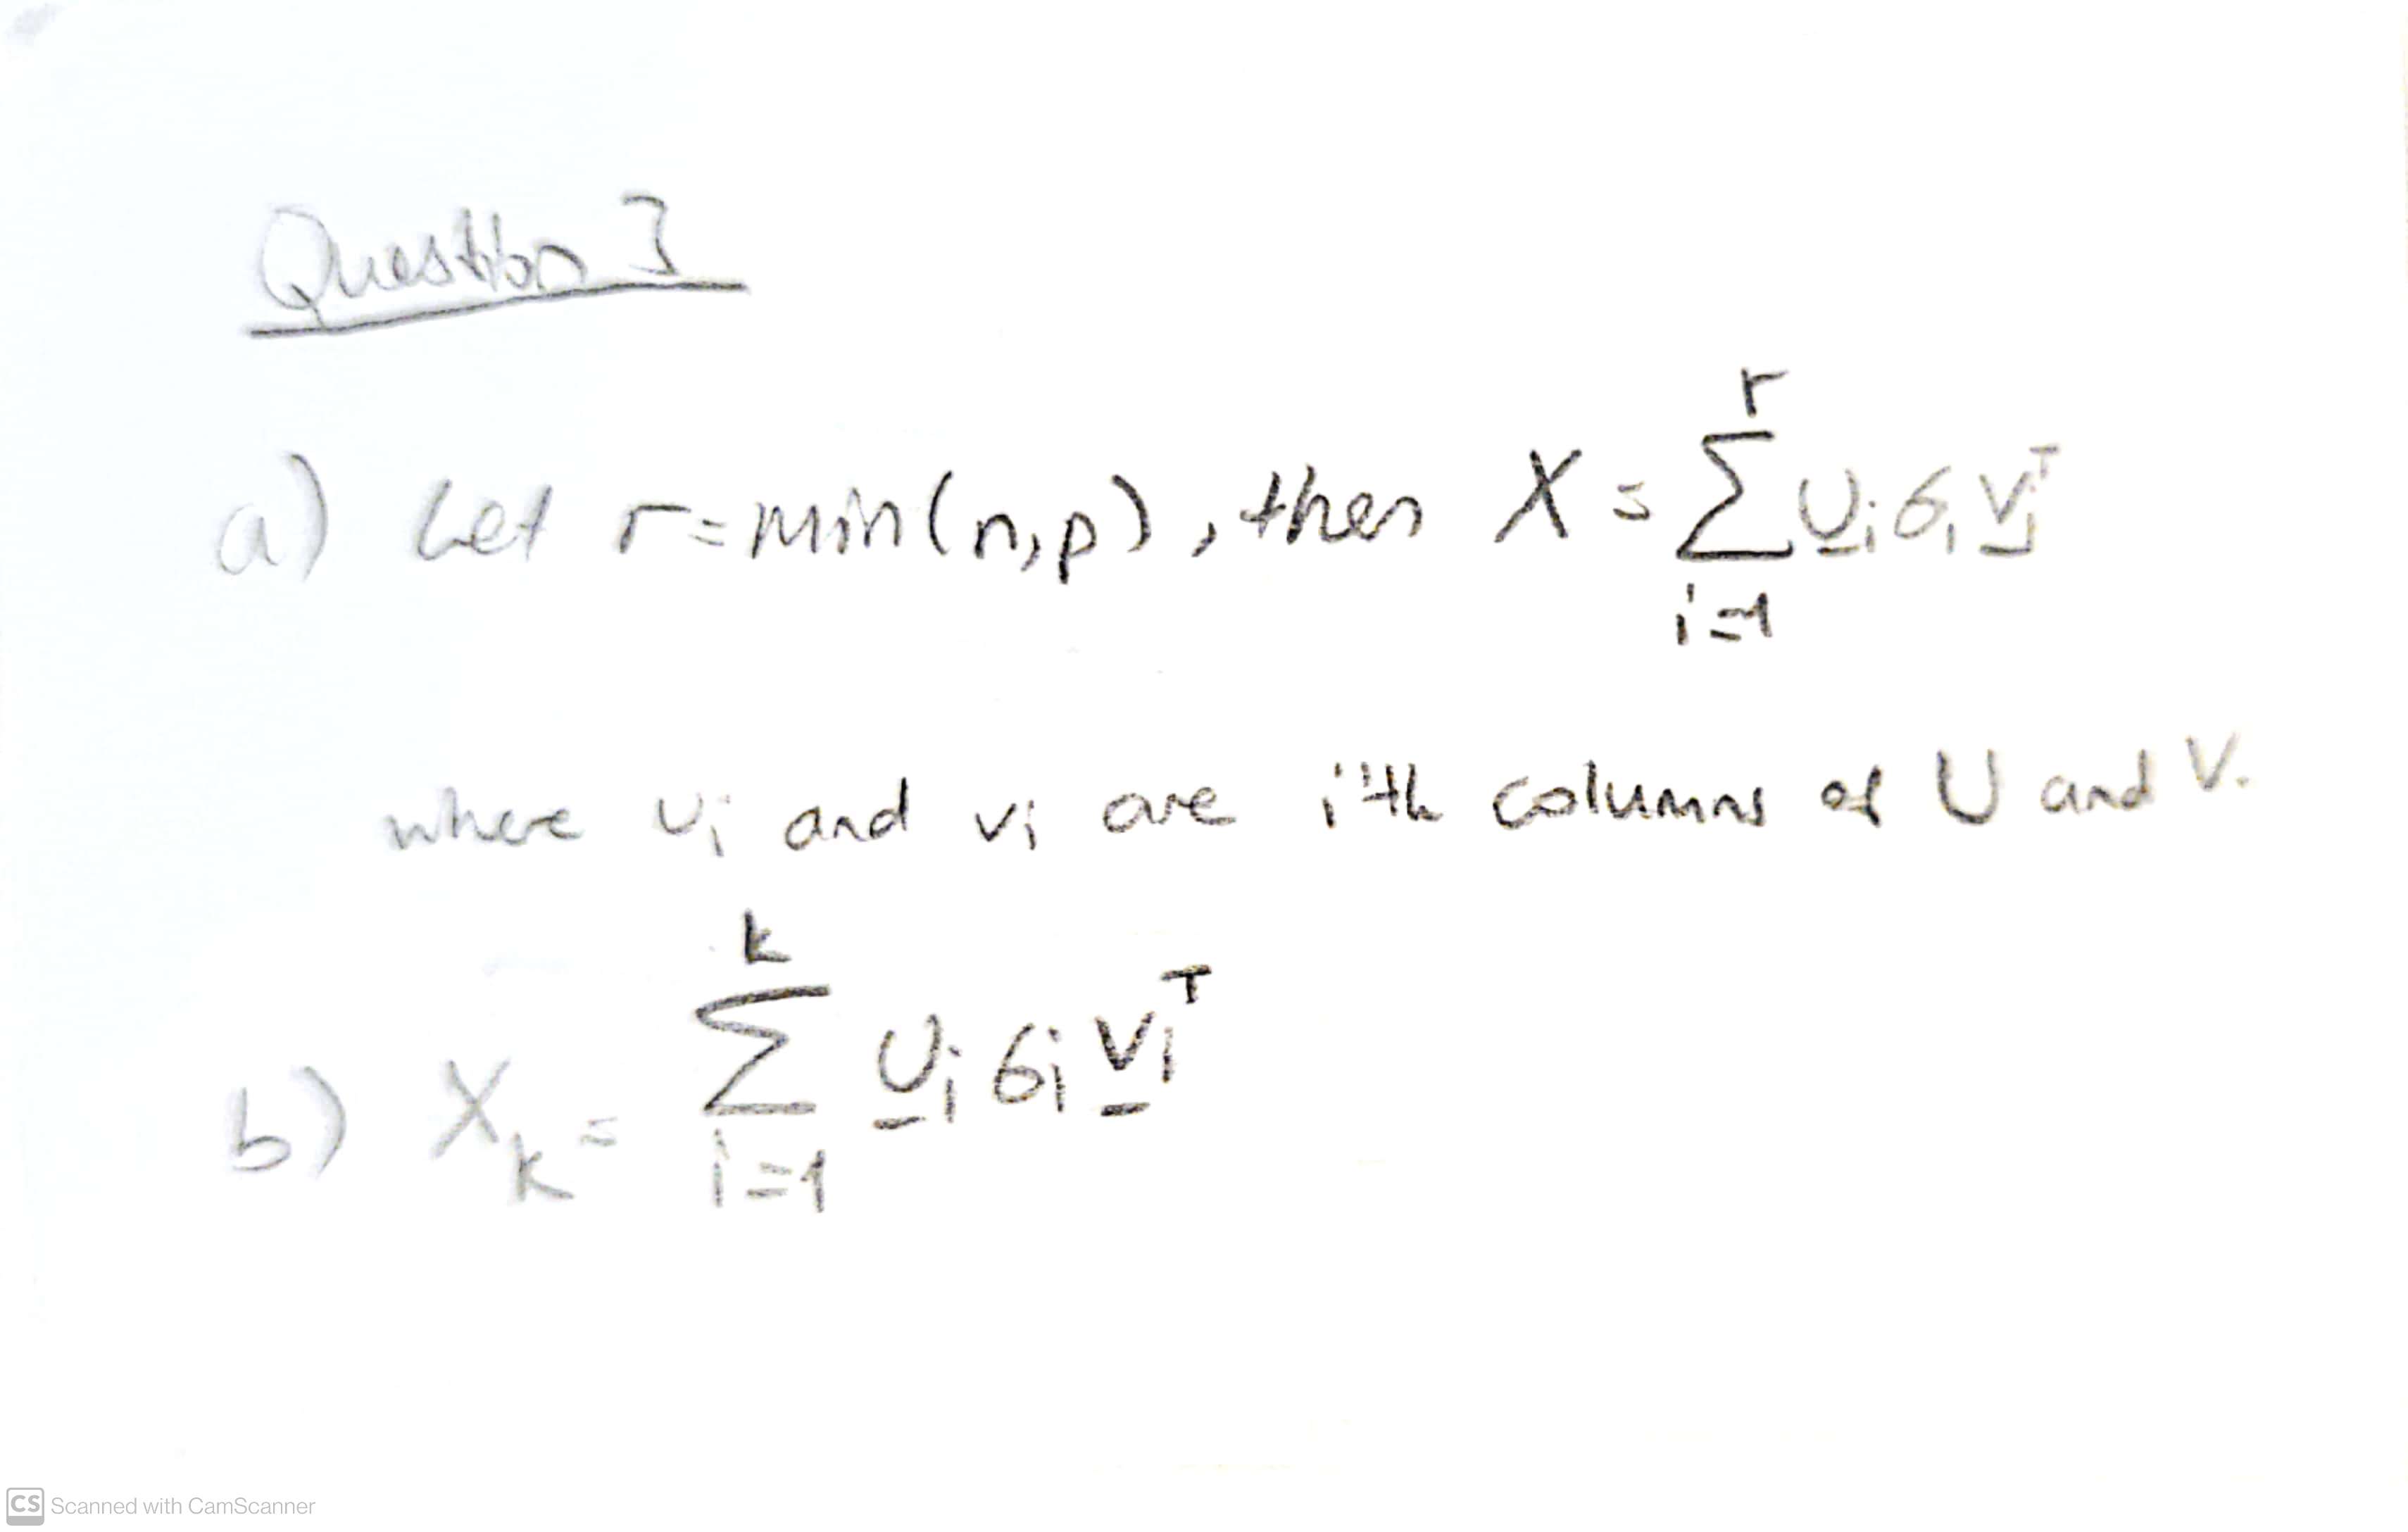 Question 3
a) Let r=min(n,p), then X = ∑_{i=1}^{r} u̲ᵢ σᵢ v̲ᵢᵀ
where uᵢ and vᵢ are i'th columns of U and V.
b) X_k = ∑_{i=1}^{k} u̲ᵢ σᵢ v̲ᵢᵀ
CS Scanned with CamScanner